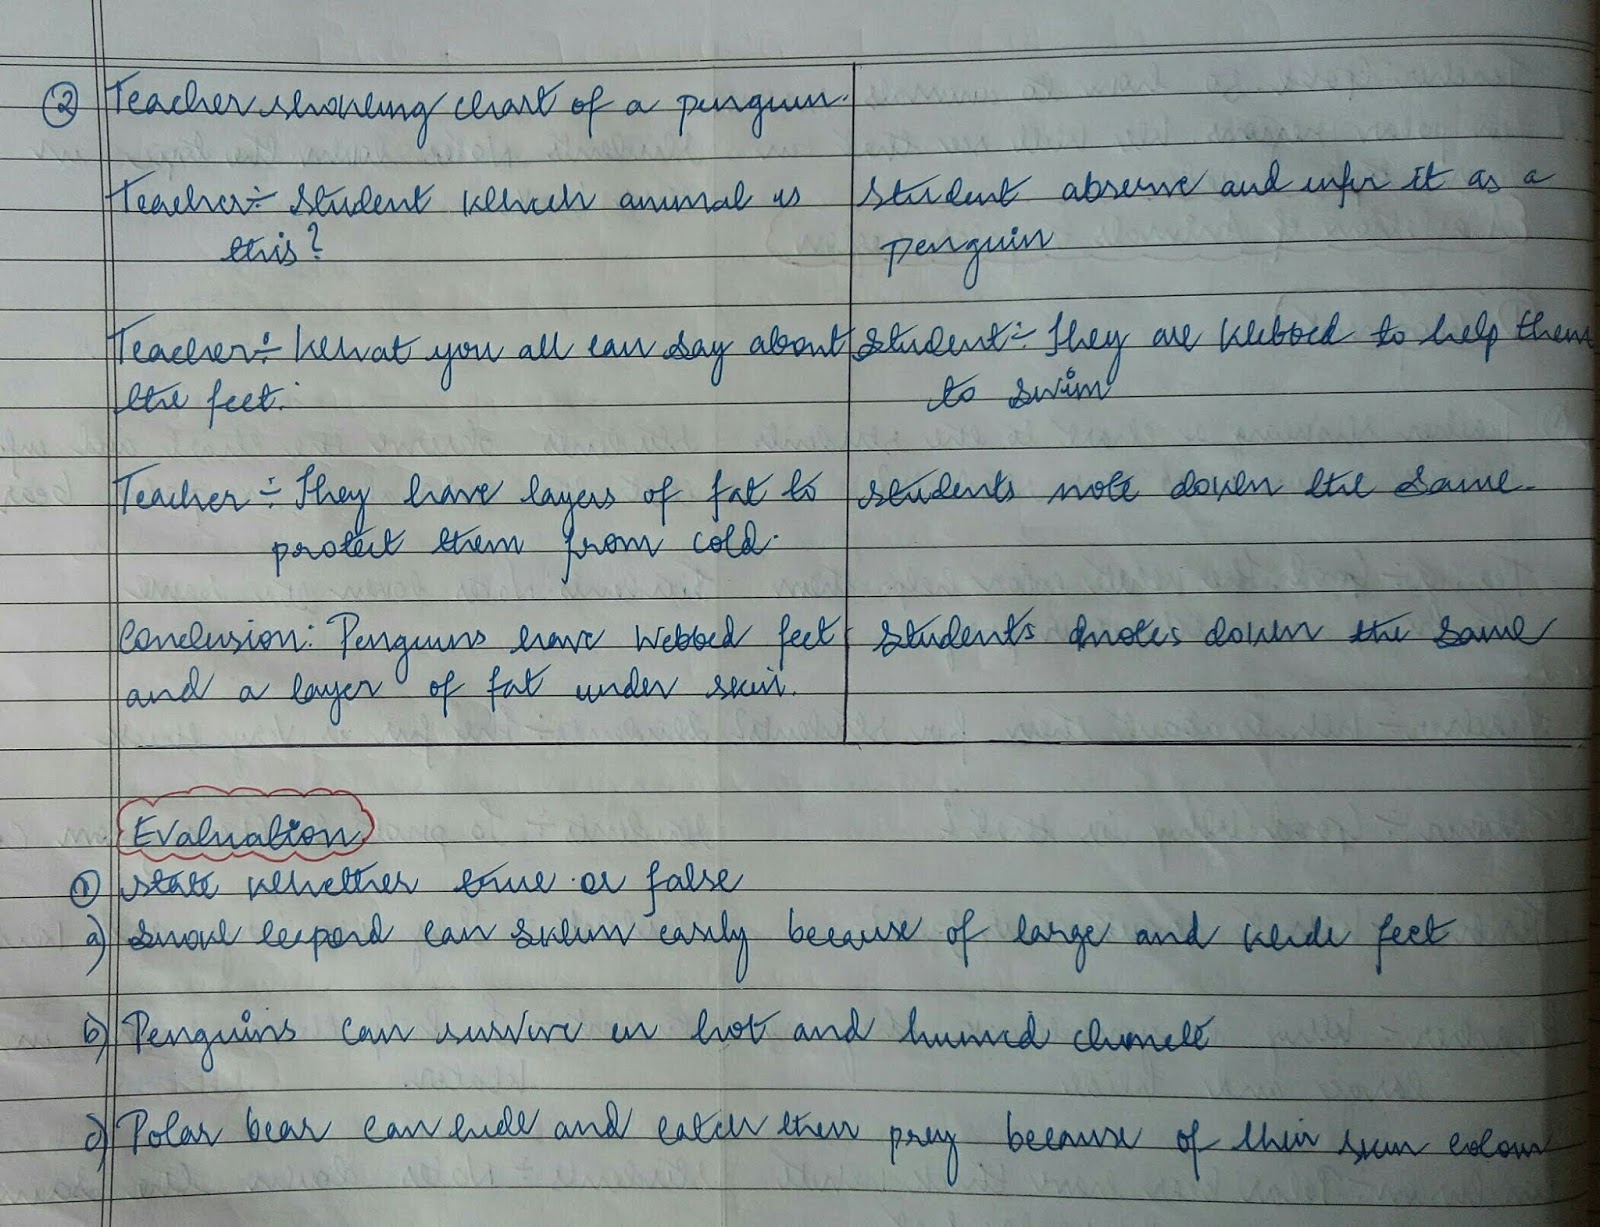 ② Teacher showing chart of a penguin.
Teacher÷ student which animal is
this?
student observe and infer it as a
penguin
Teacher÷ What you all can say about
the feet.
student÷ They are webbed to help them
to swim
Teacher÷ They have layers of fat to
protect them from cold.
students note down the same.
Conclusion: Penguins have webbed feet
and a layer of fat under skin.
students notes down the same
Evaluation
① state whether true or false
a) Snow leepord can swim easily because of large and wide feet
b) Penguins can survive in hot and humid climate
c) Polar bear can hide and catch their prey because of their skin colour